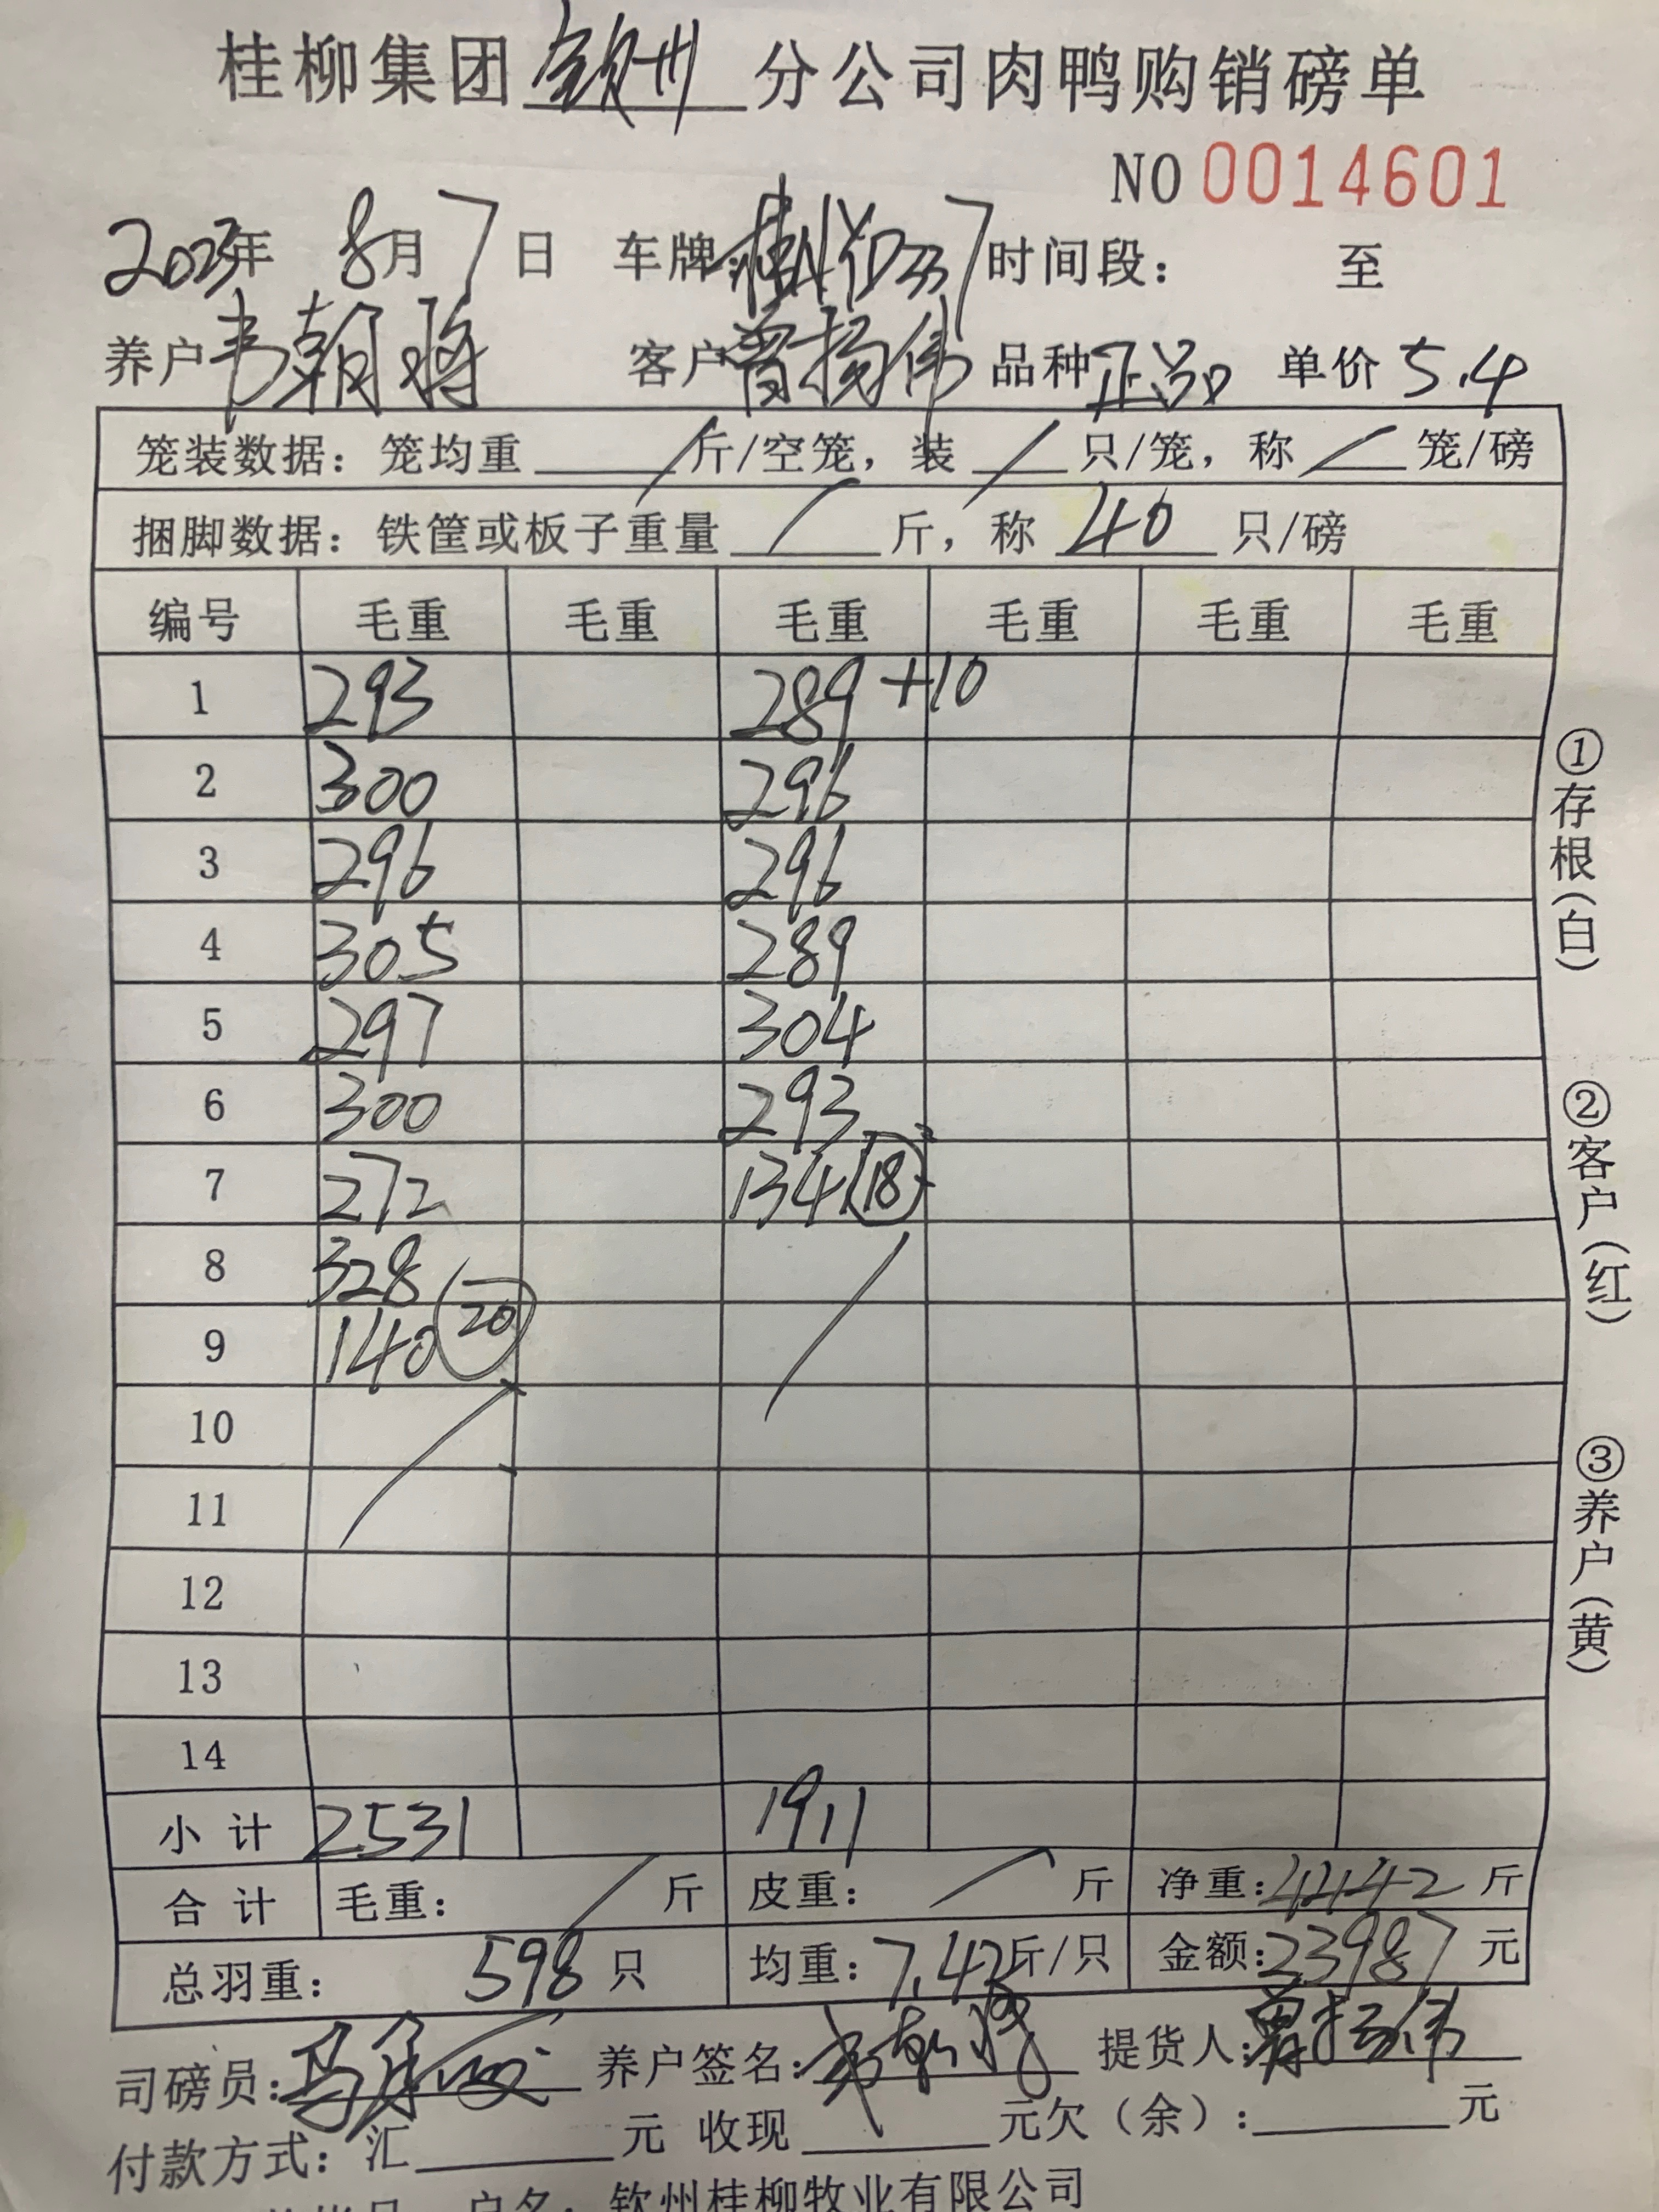 桂柳集团钦州分公司肉鸭购销磅单
NO 0014601
2023年 8月7日 车牌:桂NYD337 时间段: 至
养户韦朝将 客户曾扬伟 品种正品 单价5.4
笼装数据:笼均重 / 斤/空笼,装 / 只/笼,称 / 笼/磅
捆脚数据:铁筐或板子重量 / 斤,称 40 只/磅
编号 毛重 毛重 毛重 毛重 毛重 毛重
1 293 289+10
2 300 296
3 296 296
4 305 289
5 297 304
6 300 293
7 272 134(18)
8 328
9 140(20)
10
11
12
13
14
小计 2531 1911
合计 毛重: / 斤 皮重: / 斤 净重:4442斤
总羽重: 598只 均重:7.42斤/只 金额:23987元
司磅员: 养户签名: 提货人:曾扬伟
付款方式:汇 元 收现 元欠(余): 元
户名:钦州桂柳牧业有限公司
①存根(白)
②客户(红)
③养户(黄)